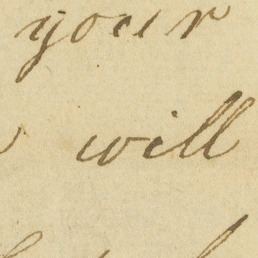 your
will